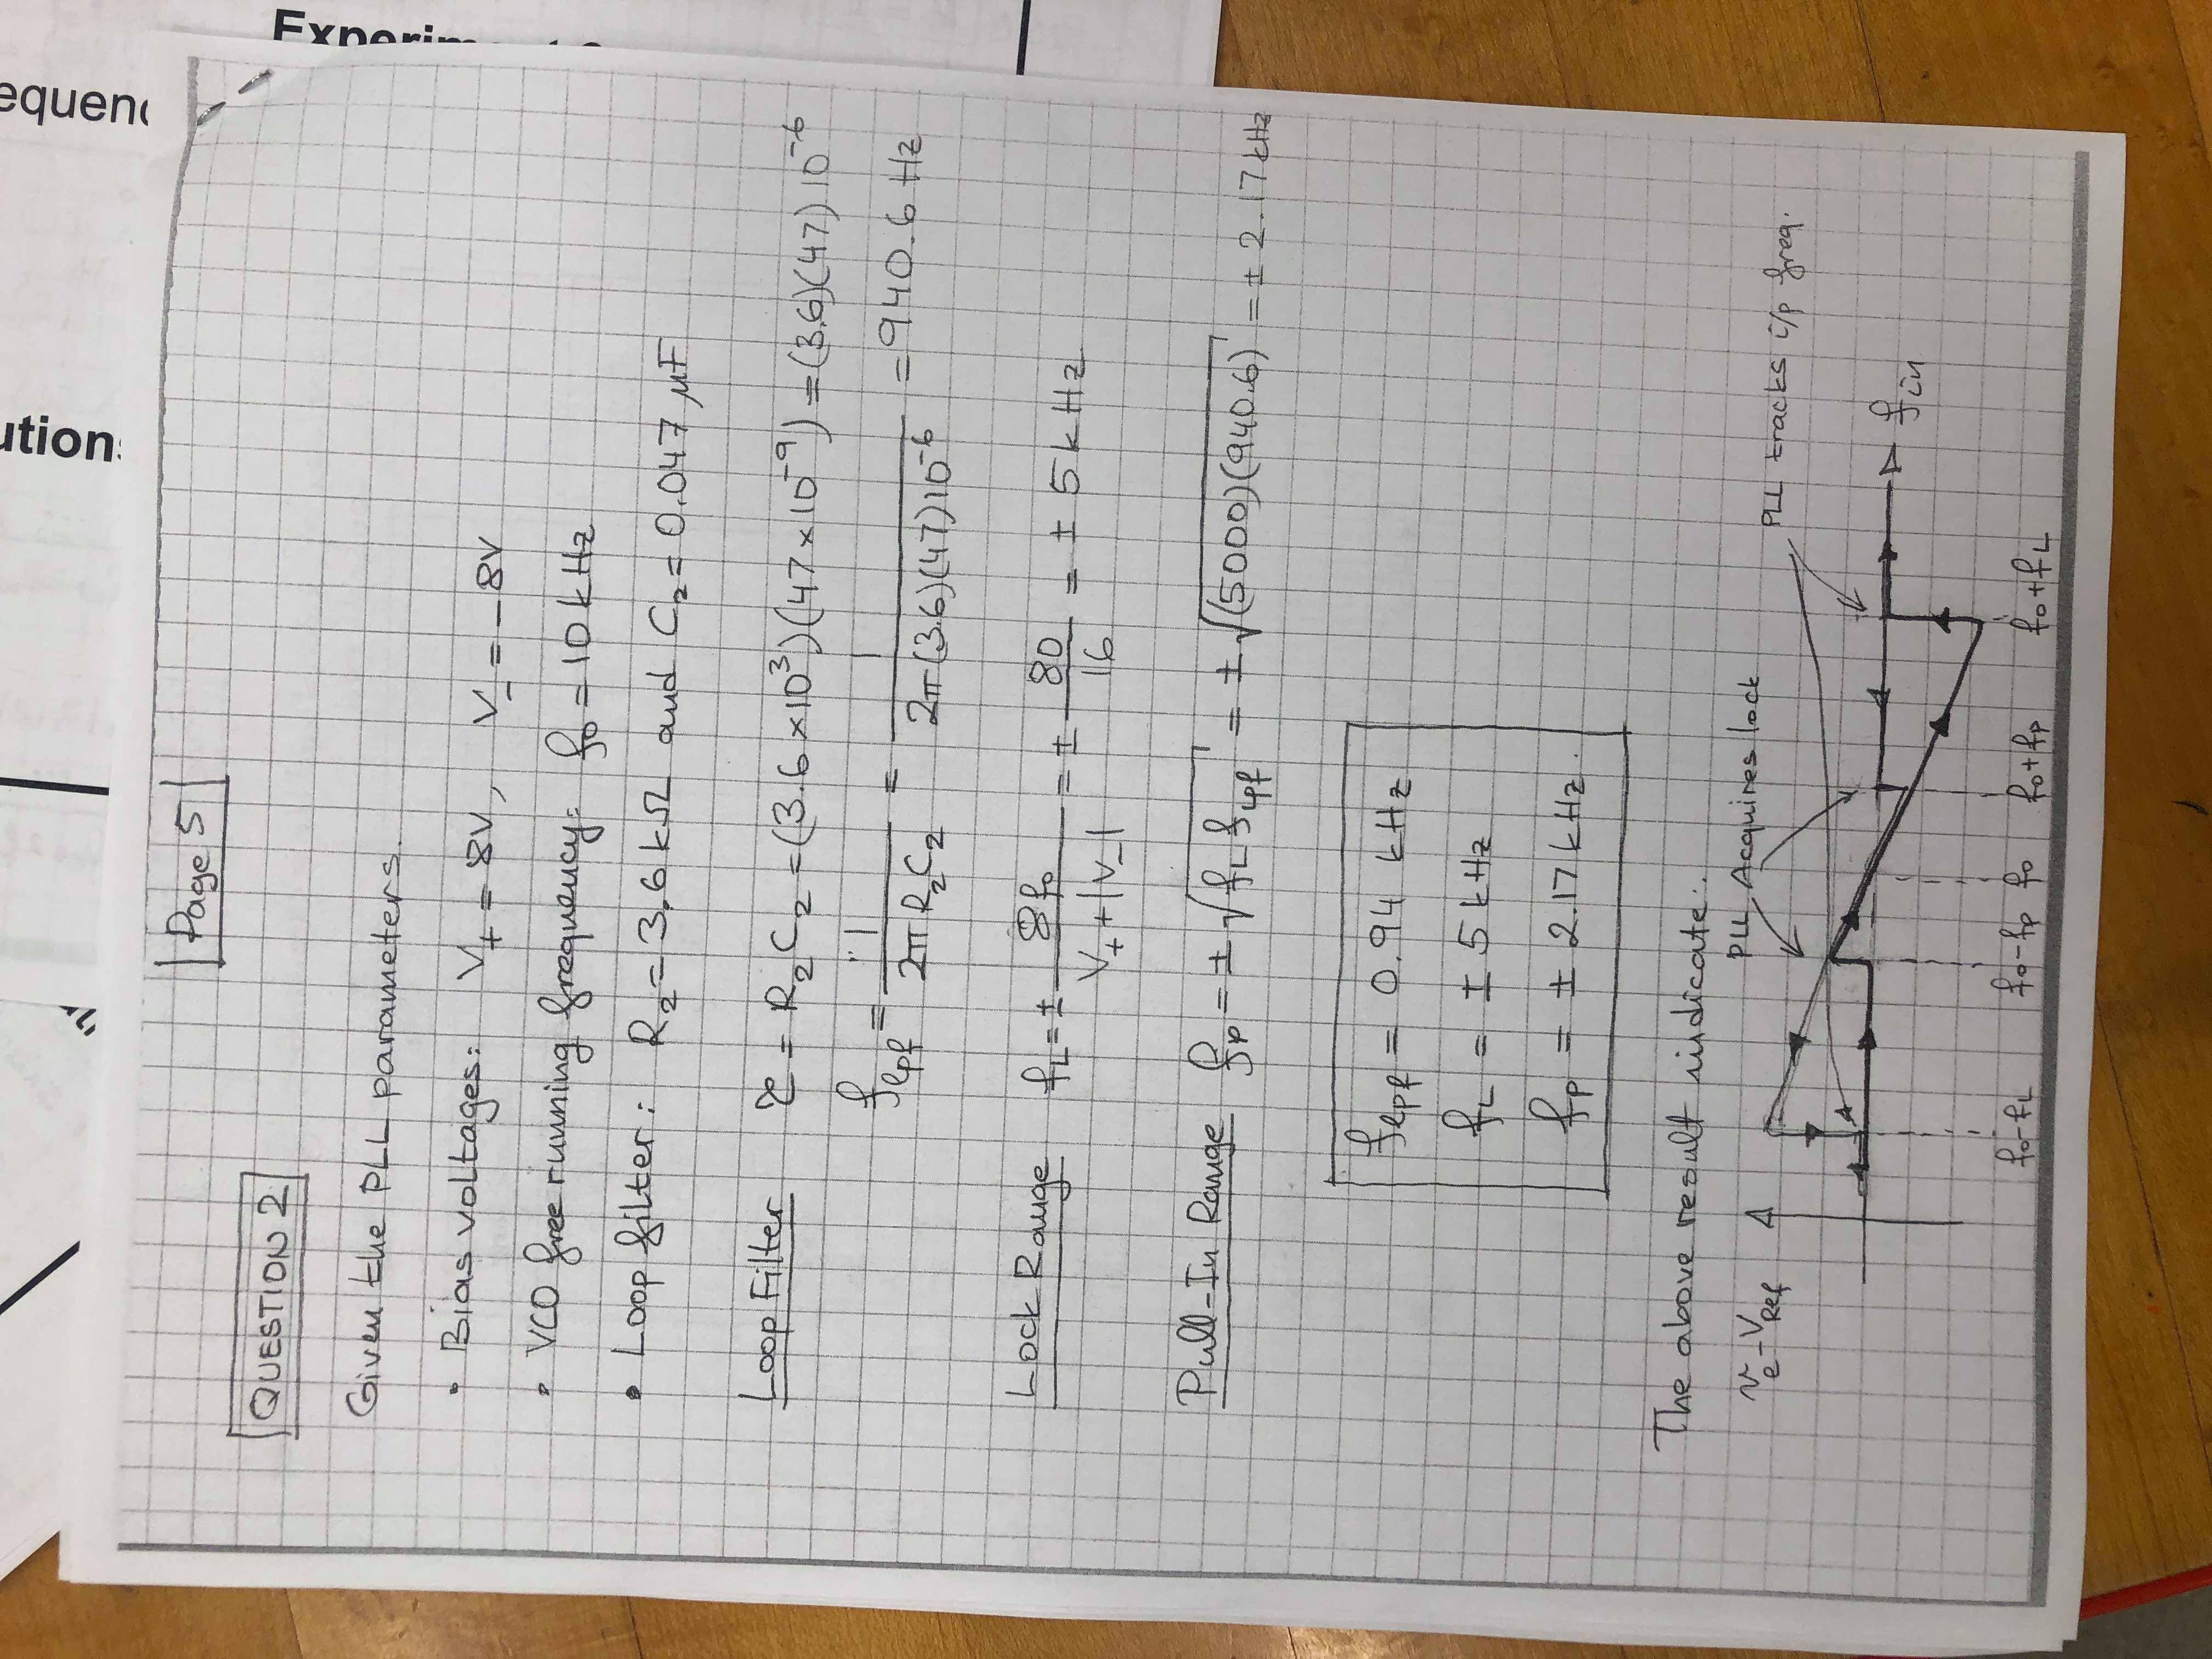 Page 5
QUESTION 2
Given the PLL parameters.
• Bias voltages: V+ = 8V, V- = -8V
• VCO free running frequency: fo = 10 kHz
• Loop filter: R2 = 3.6 kΩ and C2 = 0.047 μF
Loop Filter τ = R2C2 = (3.6×10³)(47×10⁻⁹) = (3.6)(47)10⁻⁶
∴ flpf = 1/(2πR2C2) = 1/(2π(3.6)(47)10⁻⁶) = 940.6 Hz
Lock Range fL = ± 8fo/(V+ + |V-|) = ± 80/16 = ± 5 kHz
Pull-In Range fp = ± √(fL flpf) = ± √((5000)(940.6)) = ± 2.17 kHz
flpf = 0.94 kHz
fL = ± 5 kHz
fp = ± 2.17 kHz.
The above result indicate:
ve - VRef
PLL Acquires lock
PLL tracks i/p freq.
fin
fo-fL fo-fp fo fo+fp fo+fL
equenc
ution